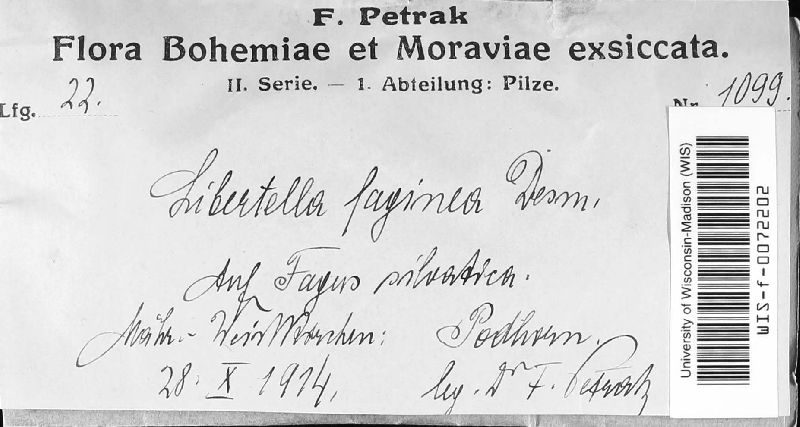 F. Petrak
Flora Bohemiae et Moraviae exsiccata.
II. Serie. — 1. Abteilung: Pilze.
Lfg. 22.
Nr. 1099.
Libertella faginea Desm.
Auf Fagus silvatica.
Mähr.-Weisskirchen: Podhorn.
28. X 1914. leg. Dr F. Petrak
University of Wisconsin-Madison (WIS)
WIS-f-0072202